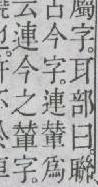 屬字。耳部曰。聯
古今字。連輦爲
云連今之輦字。